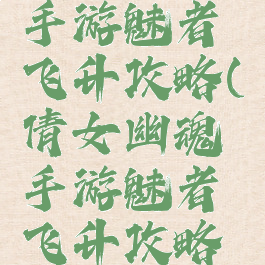 手游魅者
飞升攻略(
倩女幽魂
手游魅者
飞升攻略